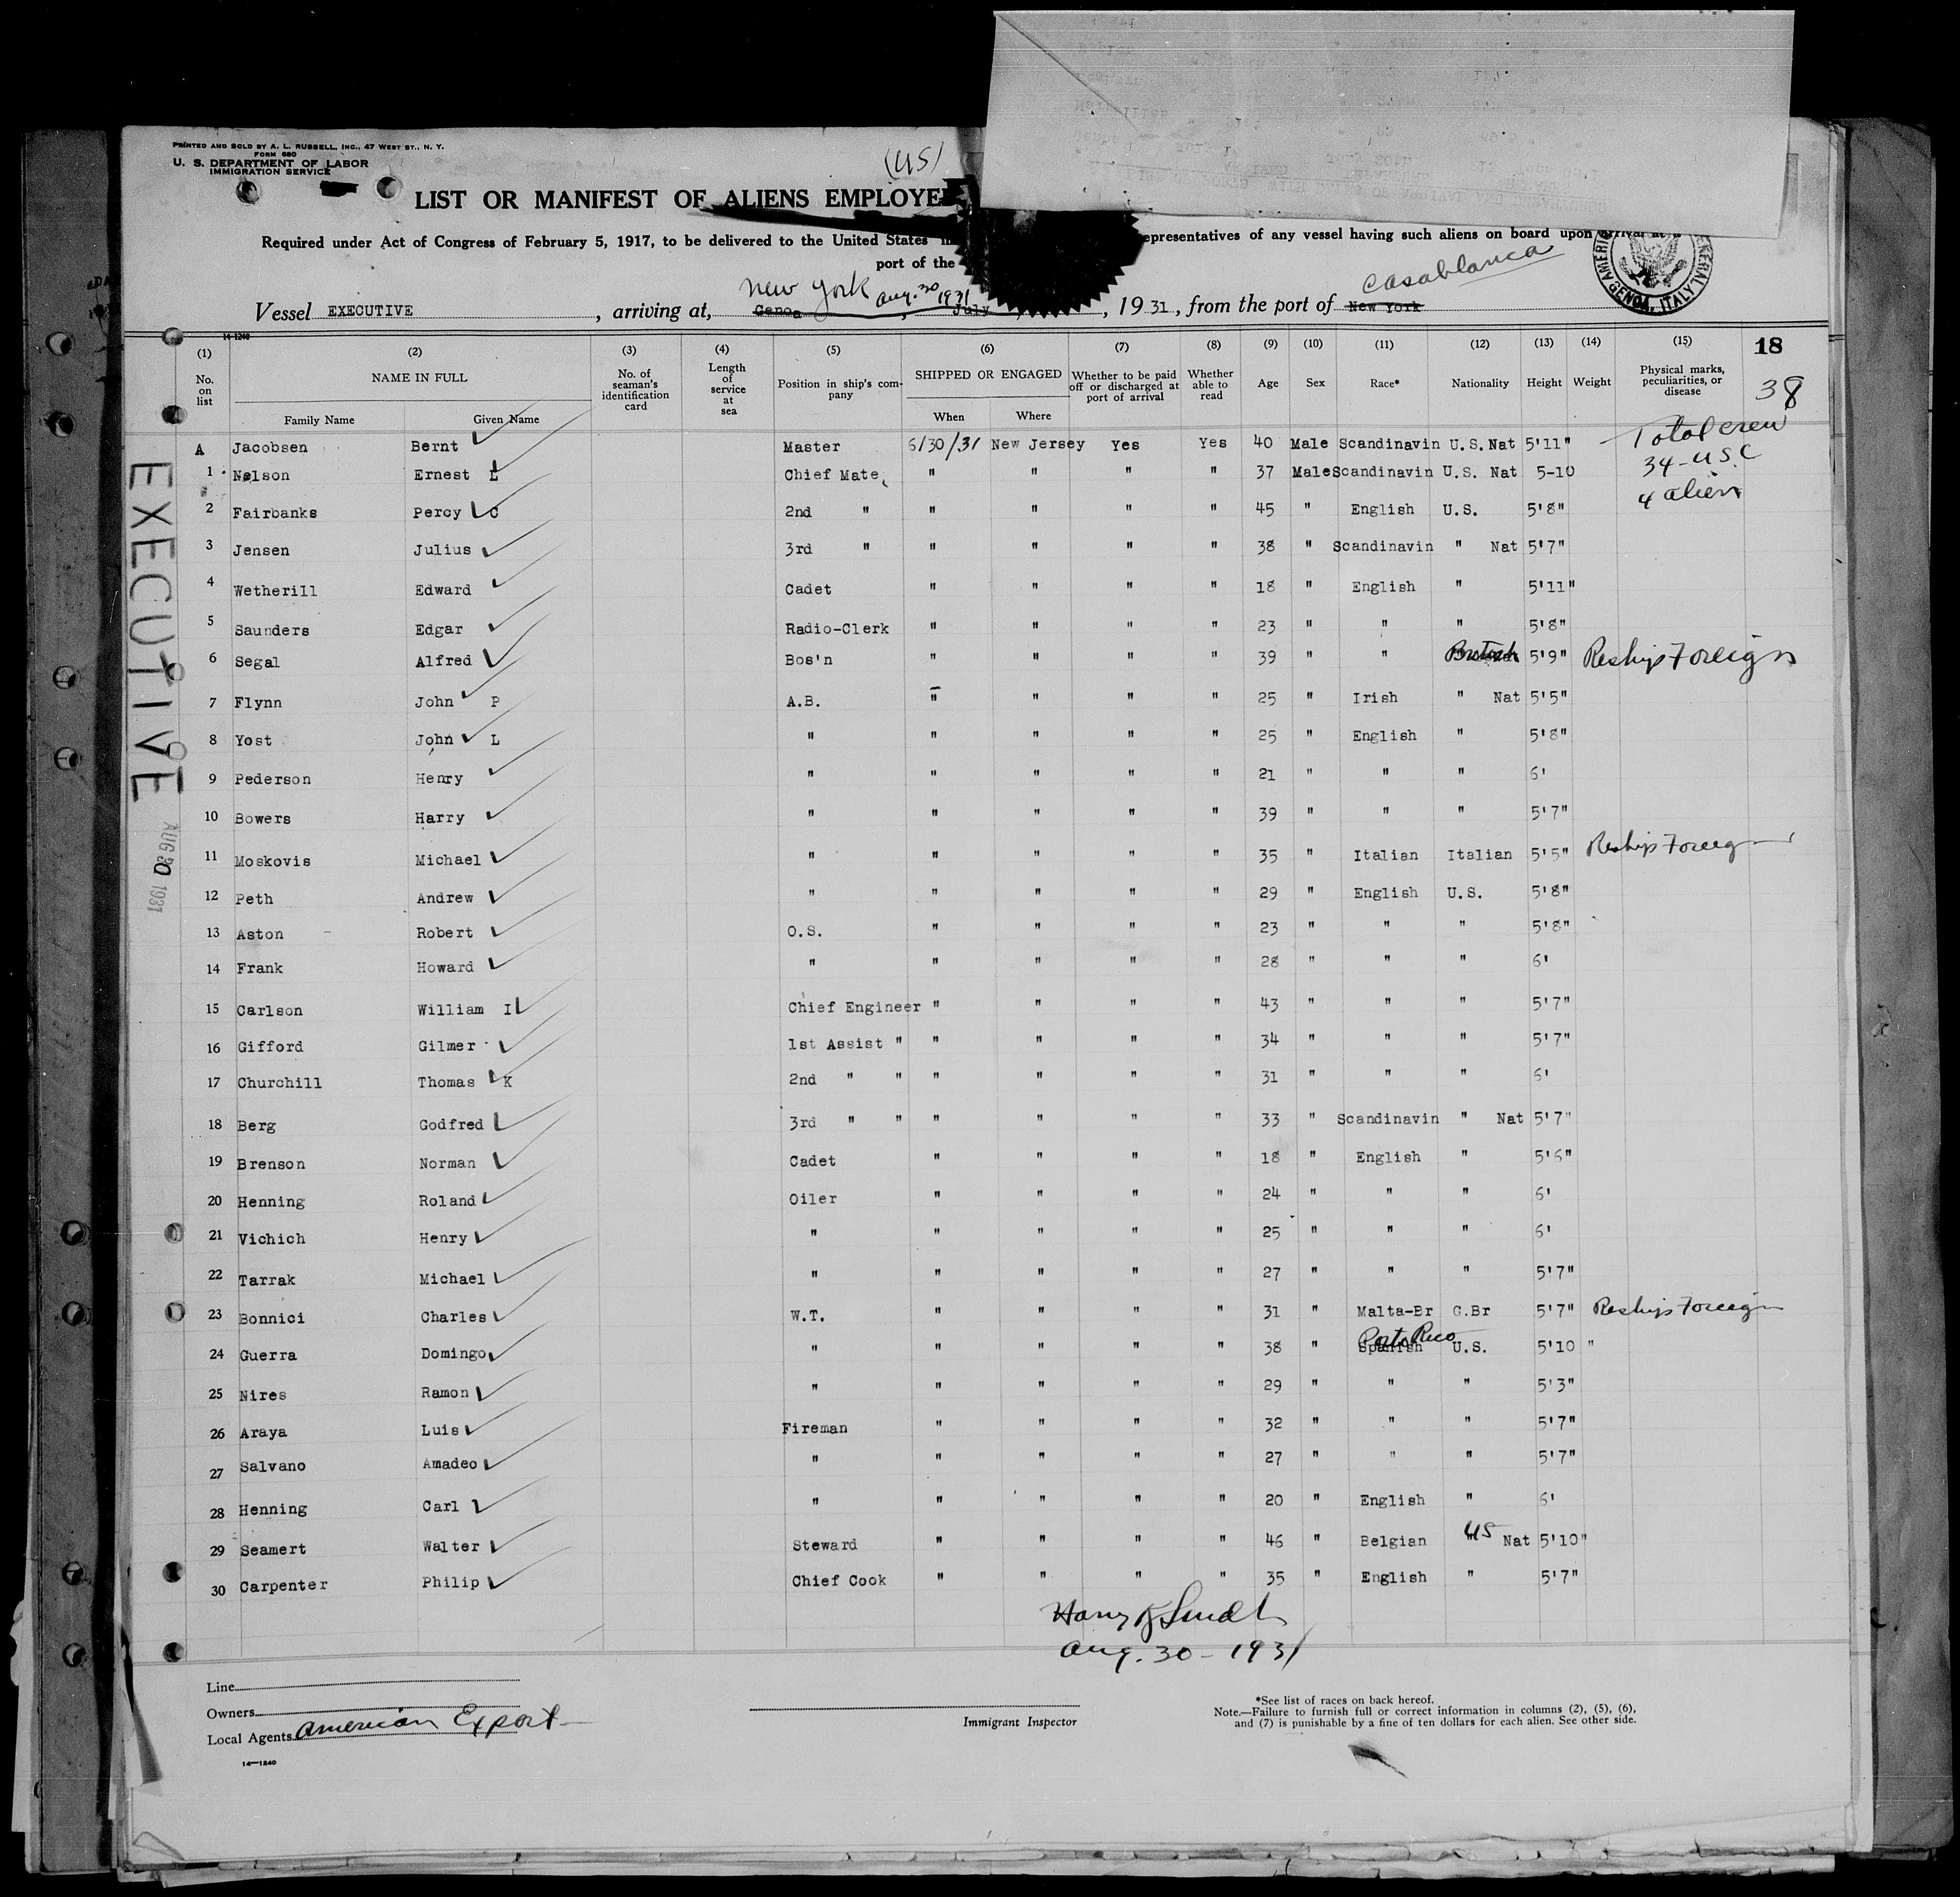 PRINTED AND SOLD BY A. L. RUSSELL, INC., 47 WEST ST., N. Y.
FORM 680
U. S. DEPARTMENT OF LABOR
IMMIGRATION SERVICE
(US)
LIST OR MANIFEST OF ALIENS EMPLOYE
Required under Act of Congress of February 5, 1917, to be delivered to the United States epresentatives of any vessel having such aliens on board upon arrival at a
port of the
AMERI ERAL GENOA, ITALY
New York Aug. 30 1931 Casablanca
Vessel EXECUTIVE, arriving at, Genoa, July, 1931, from the port of New York
14-1240
(1) (2) (3) (4) (5) (6) (7) (8) (9) (10) (11) (12) (13) (14) (15) 18
No. on list NAME IN FULL No. of seaman's identification card Length of service at sea Position in ship's company SHIPPED OR ENGAGED Whether to be paid off or discharged at port of arrival Whether able to read Age Sex Race* Nationality Height Weight Physical marks, peculiarities, or disease 38
Family Name Given Name When Where
Total crew
34-USC
4 alien
A Jacobsen Bernt Master 6/30/31 New Jersey Yes Yes 40 Male Scandinavin U.S. Nat 5'11"
1 Nelson Ernest L Chief Mate " " " " 37 Male Scandinavin U.S. Nat 5-10
2 Fairbanks Percy C 2nd " " " " " 45 " English U.S. 5'8"
3 Jensen Julius 3rd " " " " " 38 " Scandinavin " Nat 5'7"
4 Wetherill Edward Cadet " " " " 18 " English " 5'11"
5 Saunders Edgar Radio-Clerk " " " " 23 " " " 5'8"
6 Segal Alfred Bos'n " " " " 39 " " British 5'9" Reship Foreign
7 Flynn John P A.B. " " " " 25 " Irish " Nat 5'5"
8 Yost John L " " " " " 25 " English " 5'8"
9 Pederson Henry " " " " " 21 " " " 6'
10 Bowers Harry " " " " " 39 " " " 5'7"
11 Moskovis Michael " " " " " 35 " Italian Italian 5'5" Reship Foreign
12 Peth Andrew " " " " " 29 " English U.S. 5'8"
13 Aston Robert O.S. " " " " 23 " " " 5'8"
14 Frank Howard " " " " " 28 " " " 6'
15 Carlson William I Chief Engineer " " " " 43 " " " 5'7"
16 Gifford Gilmer 1st Assist " " " " " 34 " " " 5'7"
17 Churchill Thomas K 2nd " " " " " " 31 " " " 6'
18 Berg Godfred 3rd " " " " " " 33 " Scandinavin " Nat 5'7"
19 Brenson Norman Cadet " " " " 18 " English " 5'6"
20 Henning Roland Oiler " " " " 24 " " " 6'
21 Vichich Henry " " " " " 25 " " " 6'
22 Tarrak Michael " " " " " 27 " " " 5'7"
23 Bonnici Charles W.T. " " " " 31 " Malta-Br G.Br 5'7" Reship Foreign
Porto Rico
24 Guerra Domingo " " " " " 38 " Spanish U.S. 5'10 "
25 Nires Ramon " " " " " 29 " " " 5'3"
26 Araya Luis Fireman " " " " 32 " " " 5'7"
27 Salvano Amadeo " " " " " 27 " " " 5'7"
28 Henning Carl " " " " " 20 " English " 6'
29 Seamert Walter Steward " " " " 46 " Belgian " US Nat 5'10"
30 Carpenter Philip Chief Cook " " " " 35 " English " 5'7"
EXECUTIVE
AUG 30 1931
Aug. 30 - 1931
Line
Owners
Local Agents American Export
Immigrant Inspector
*See list of races on back hereof.
Note.—Failure to furnish full or correct information in columns (2), (5), (6),
and (7) is punishable by a fine of ten dollars for each alien. See other side.
14—1240